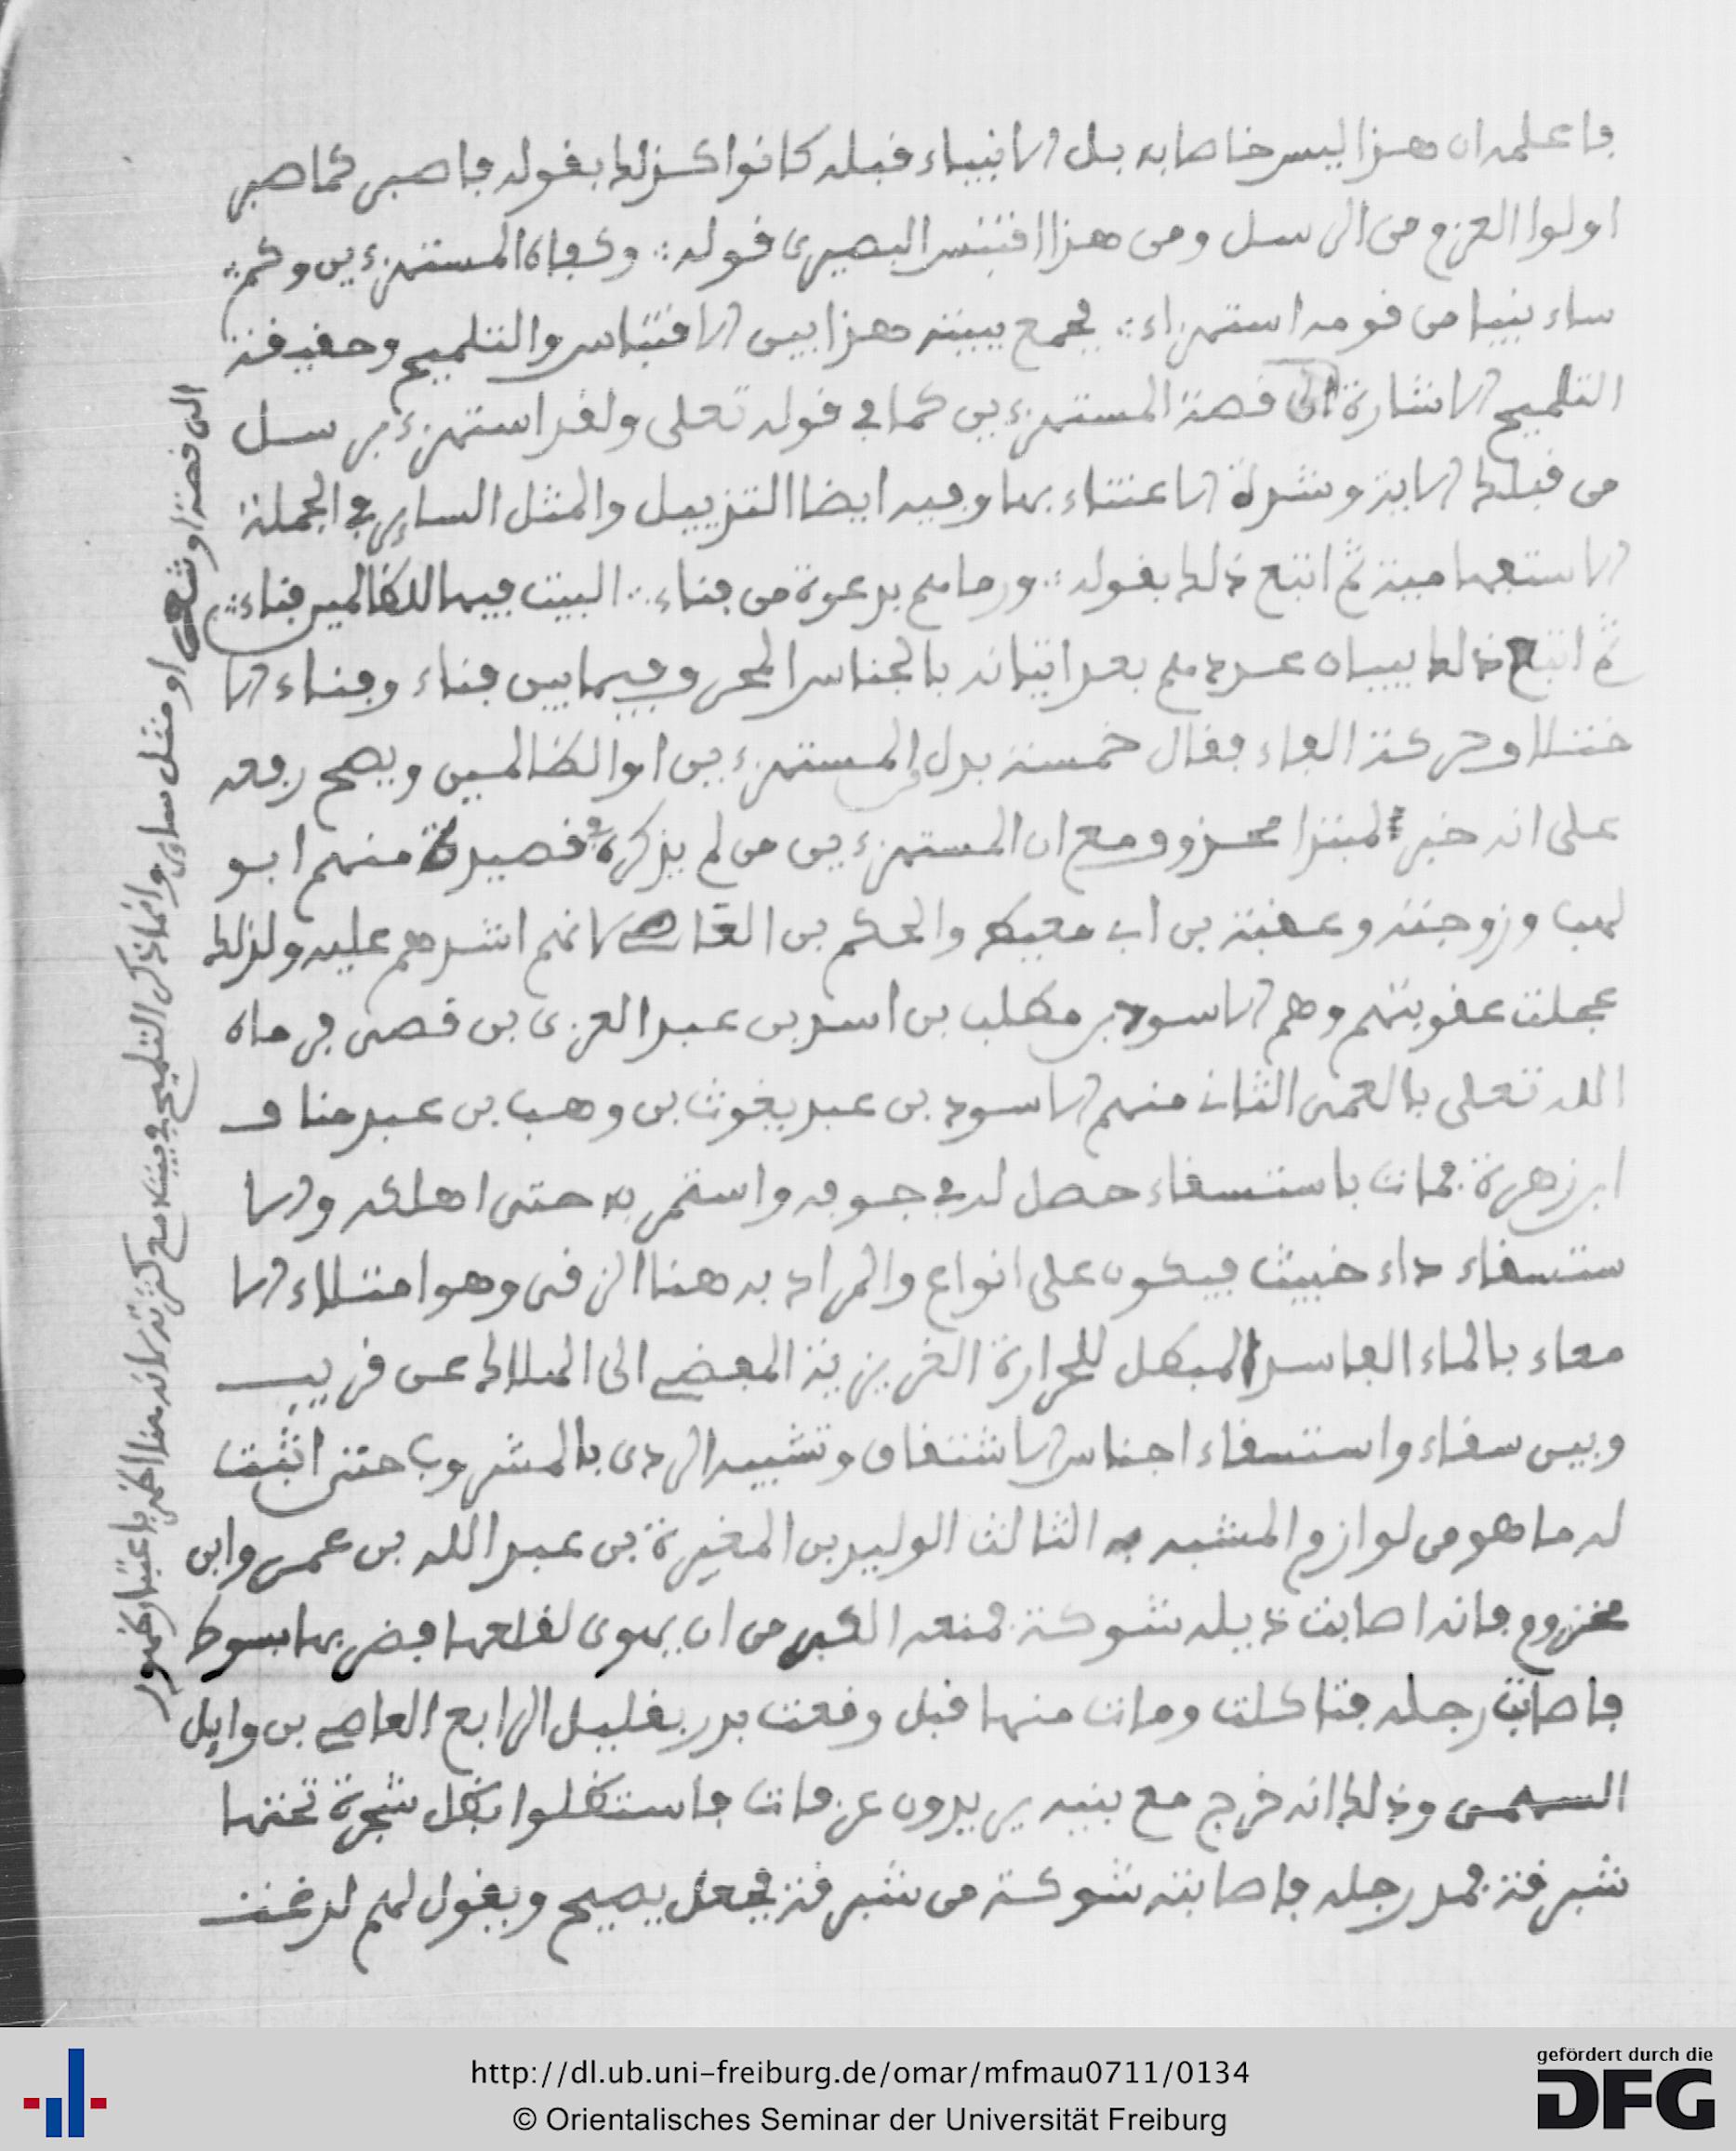 فاعلمه ان هذا ليس خاصا به بل الانبياء قبله كانوا كذلك بقوله فاصبر كما صبر
اولوا العزم من الرسل ومن هذا اقتبس البصيري قوله ∴ وكفاه المستهزءين وكم ∴
ساء نبيا من قومه استهزاء ∴ فجمع ببيته هذا بين الاقتباس والتلميح وحقيقة
التلميح الاشارة الى قصة المستهزءين كما في قوله تعلى ولقد استهزئ برسل
من قبلك الاية وشدة الاعتناء بها وفيه ايضا التذييل والمثل الساير في الجملة
الاستفهامية ثم اتبع ذلك بقوله ∴ ورماهم بدعوة من فناء ∴ البيت فيها للظالمين فناء ∴
ثم اتبع ذلك ببيان عددهم بعد اتيانه بالجناس المحرف فيما بين فناء وفناء لا
ختلاف حركة الفاء فقال خمسة بدل من المستهزءين او الظالمين ويصح رفعه
على انه خبر لمبتدا محذوف مع ان المستهزءين من لم يذكره في قصيدة منهم ابو
لهب وزوجته وعقبة بن ابي معيط والحكم بن العاصي لانهم اشدهم عليه ولذلك
عجلت عقوبتهم وهم الاسود بن مطلب بن اسد بن عبد العزى بن قصى فرماه
الله تعلى بالعمى الثاني منهم الاسود بن عبد يغوث بن وهب بن عبد مناف
ابن زهرة فمات باستسقاء حصل له في جوفه واستمر به حتى اهلكه والا
ستسقاء داء خبيث فيكون على انواع والمراد به هنا الزقى وهو امتلاء الا
معاء بالماء الفاسد المبطل للحرارة الغريزية المفضي الى الهلاك عن قريب
وبين سقاء واستسقاء اجناس الاشتقاق وتشبيه الردى بالمشروب حتى اثبت
له ما هو من لوازم المشبه به الثالث الوليد بن المغيرة بن عبد الله بن عمر وابن
مخزوم فانه اصابت ذيله شوكة فمنعه الكبر من ان يهوى لقلعها فضربها بسوط
فاصابت رجله فتاكلت ومات منها قبل وقعت بدر بقليل الرابع العاصي بن وايل
السهمى وذلك انه خرج مع بنيه يريدون عرفات فاستظلوا بظل شجرة تحتها
شبرقة فمد رجله فاصابته شوكة من شبرقة فجعل يصيح ويقول لهم لدغت
الى قصة او شعر او مثل ساير وانما ذكر التلميح في بيته مع كثرته لانه هنا اظهر باعتبار ظهور
http://dl.ub.uni-freiburg.de/omar/mfmau0711/0134
© Orientalisches Seminar der Universität Freiburg
gefördert durch die
DFG